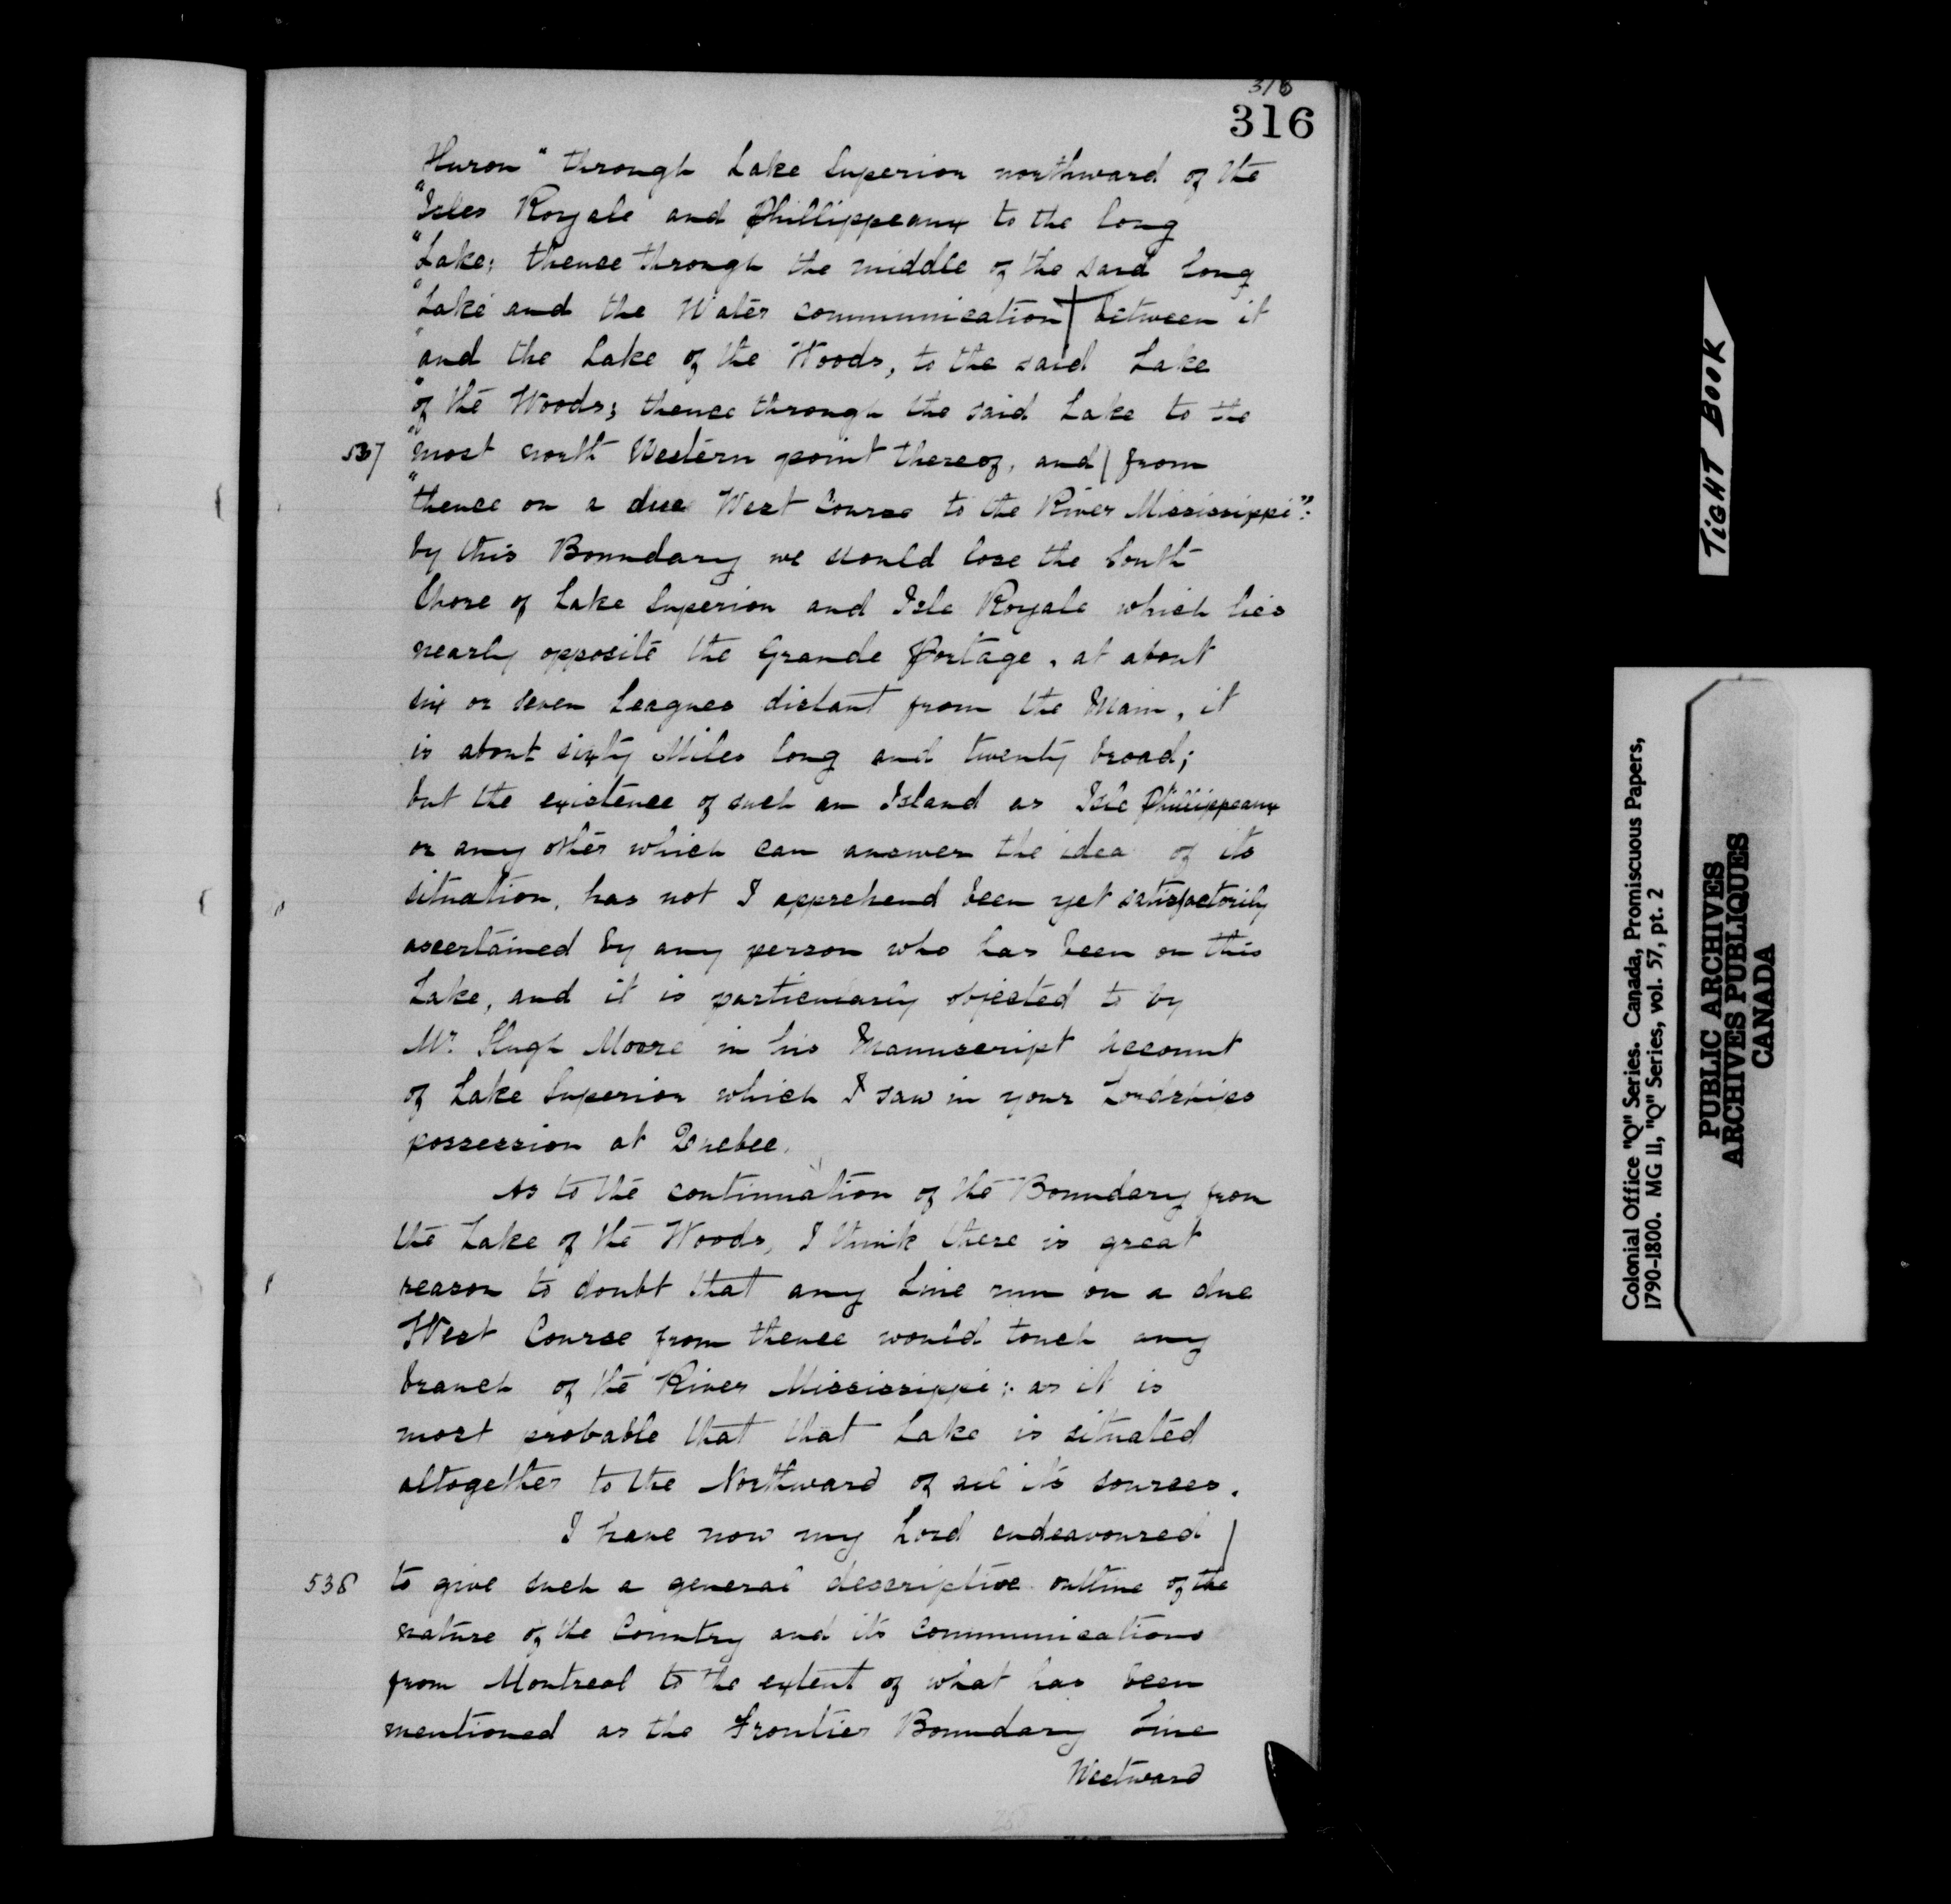 316
316
Huron" through Lake Superior northward of the
"Isles Royale and Phillippeaux to the long
"Lake; thence through the middle of the said long
"Lake and the Water communication between it
"and the Lake of the Woods, to the said Lake
"of the Woods; thence through the said Lake to the
537 "most north Western point thereof, and / from
"thence on a due West Course to the River Mississippi":
by this Boundary we would lose the South
Shore of Lake Superior and Isle Royale which lies
nearly opposite the Grande Portage, at about
six or seven Leagues distant from the Main, it
is about sixty Miles long and twenty broad;
but the existence of such an Island as Isle Phillippeaux
or any other which can answer the idea of its
situation, has not I apprehend been yet satisfactorily
ascertained by any person who has been on this
Lake, and it is particularly objected to by
Mr. Hugh Moore in his Manuscript Account
of Lake Superior which I saw in your Lordships
possession at Quebec.
As to the continuation of the Boundary from
the Lake of the Woods, I think there is great
reason to doubt that any Line run on a due
West Course from thence would touch any
branch of the River Mississippi; as it is
most probable that that Lake is situated
altogether to the Northward of all its sources.
I have now my Lord endeavoured /
538 to give such a general descriptive outline of the
nature of the Country and its communications
from Montreal to the extent of what has been
mentioned as the Frontier Boundary Line
Westward
TIGHT BOOK
Colonial Office "Q" Series. Canada, Promiscuous Papers,
1790-1800. MG 11, "Q" Series, vol. 57, pt. 2
PUBLIC ARCHIVES
ARCHIVES PUBLIQUES
CANADA